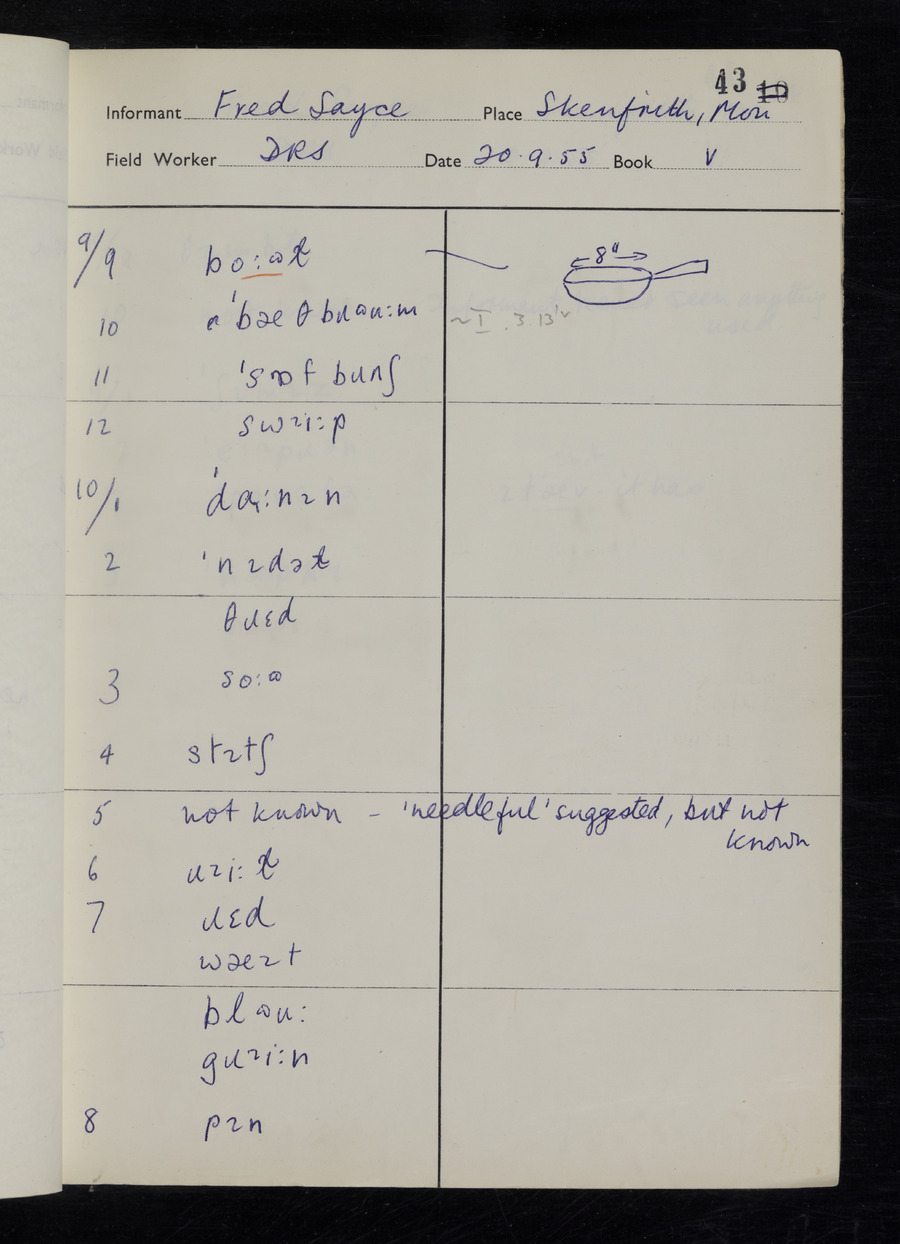 43 10
Informant Fred Sayce Place Skenfrith, Mon
Field Worker DRS Date 20.9.55 Book V
9/9 bo:ʊɫ 8"
10 ə'bæθbɹəʊ:m ~ I.3.13
11 'sɒfbɹʌʃ
12 swɪi:p
10/1 'daɪ:nɪn
2 'nɪdəɫ
θɹɛd
3 so:ʊ
4 stɪtʃ
5 not known – 'needleful' suggested, but not
known
6 ɹɪi:ɫ
7 ɹɛd
wəɪt
blʊu:
gɹɪi:n
8 pɪn